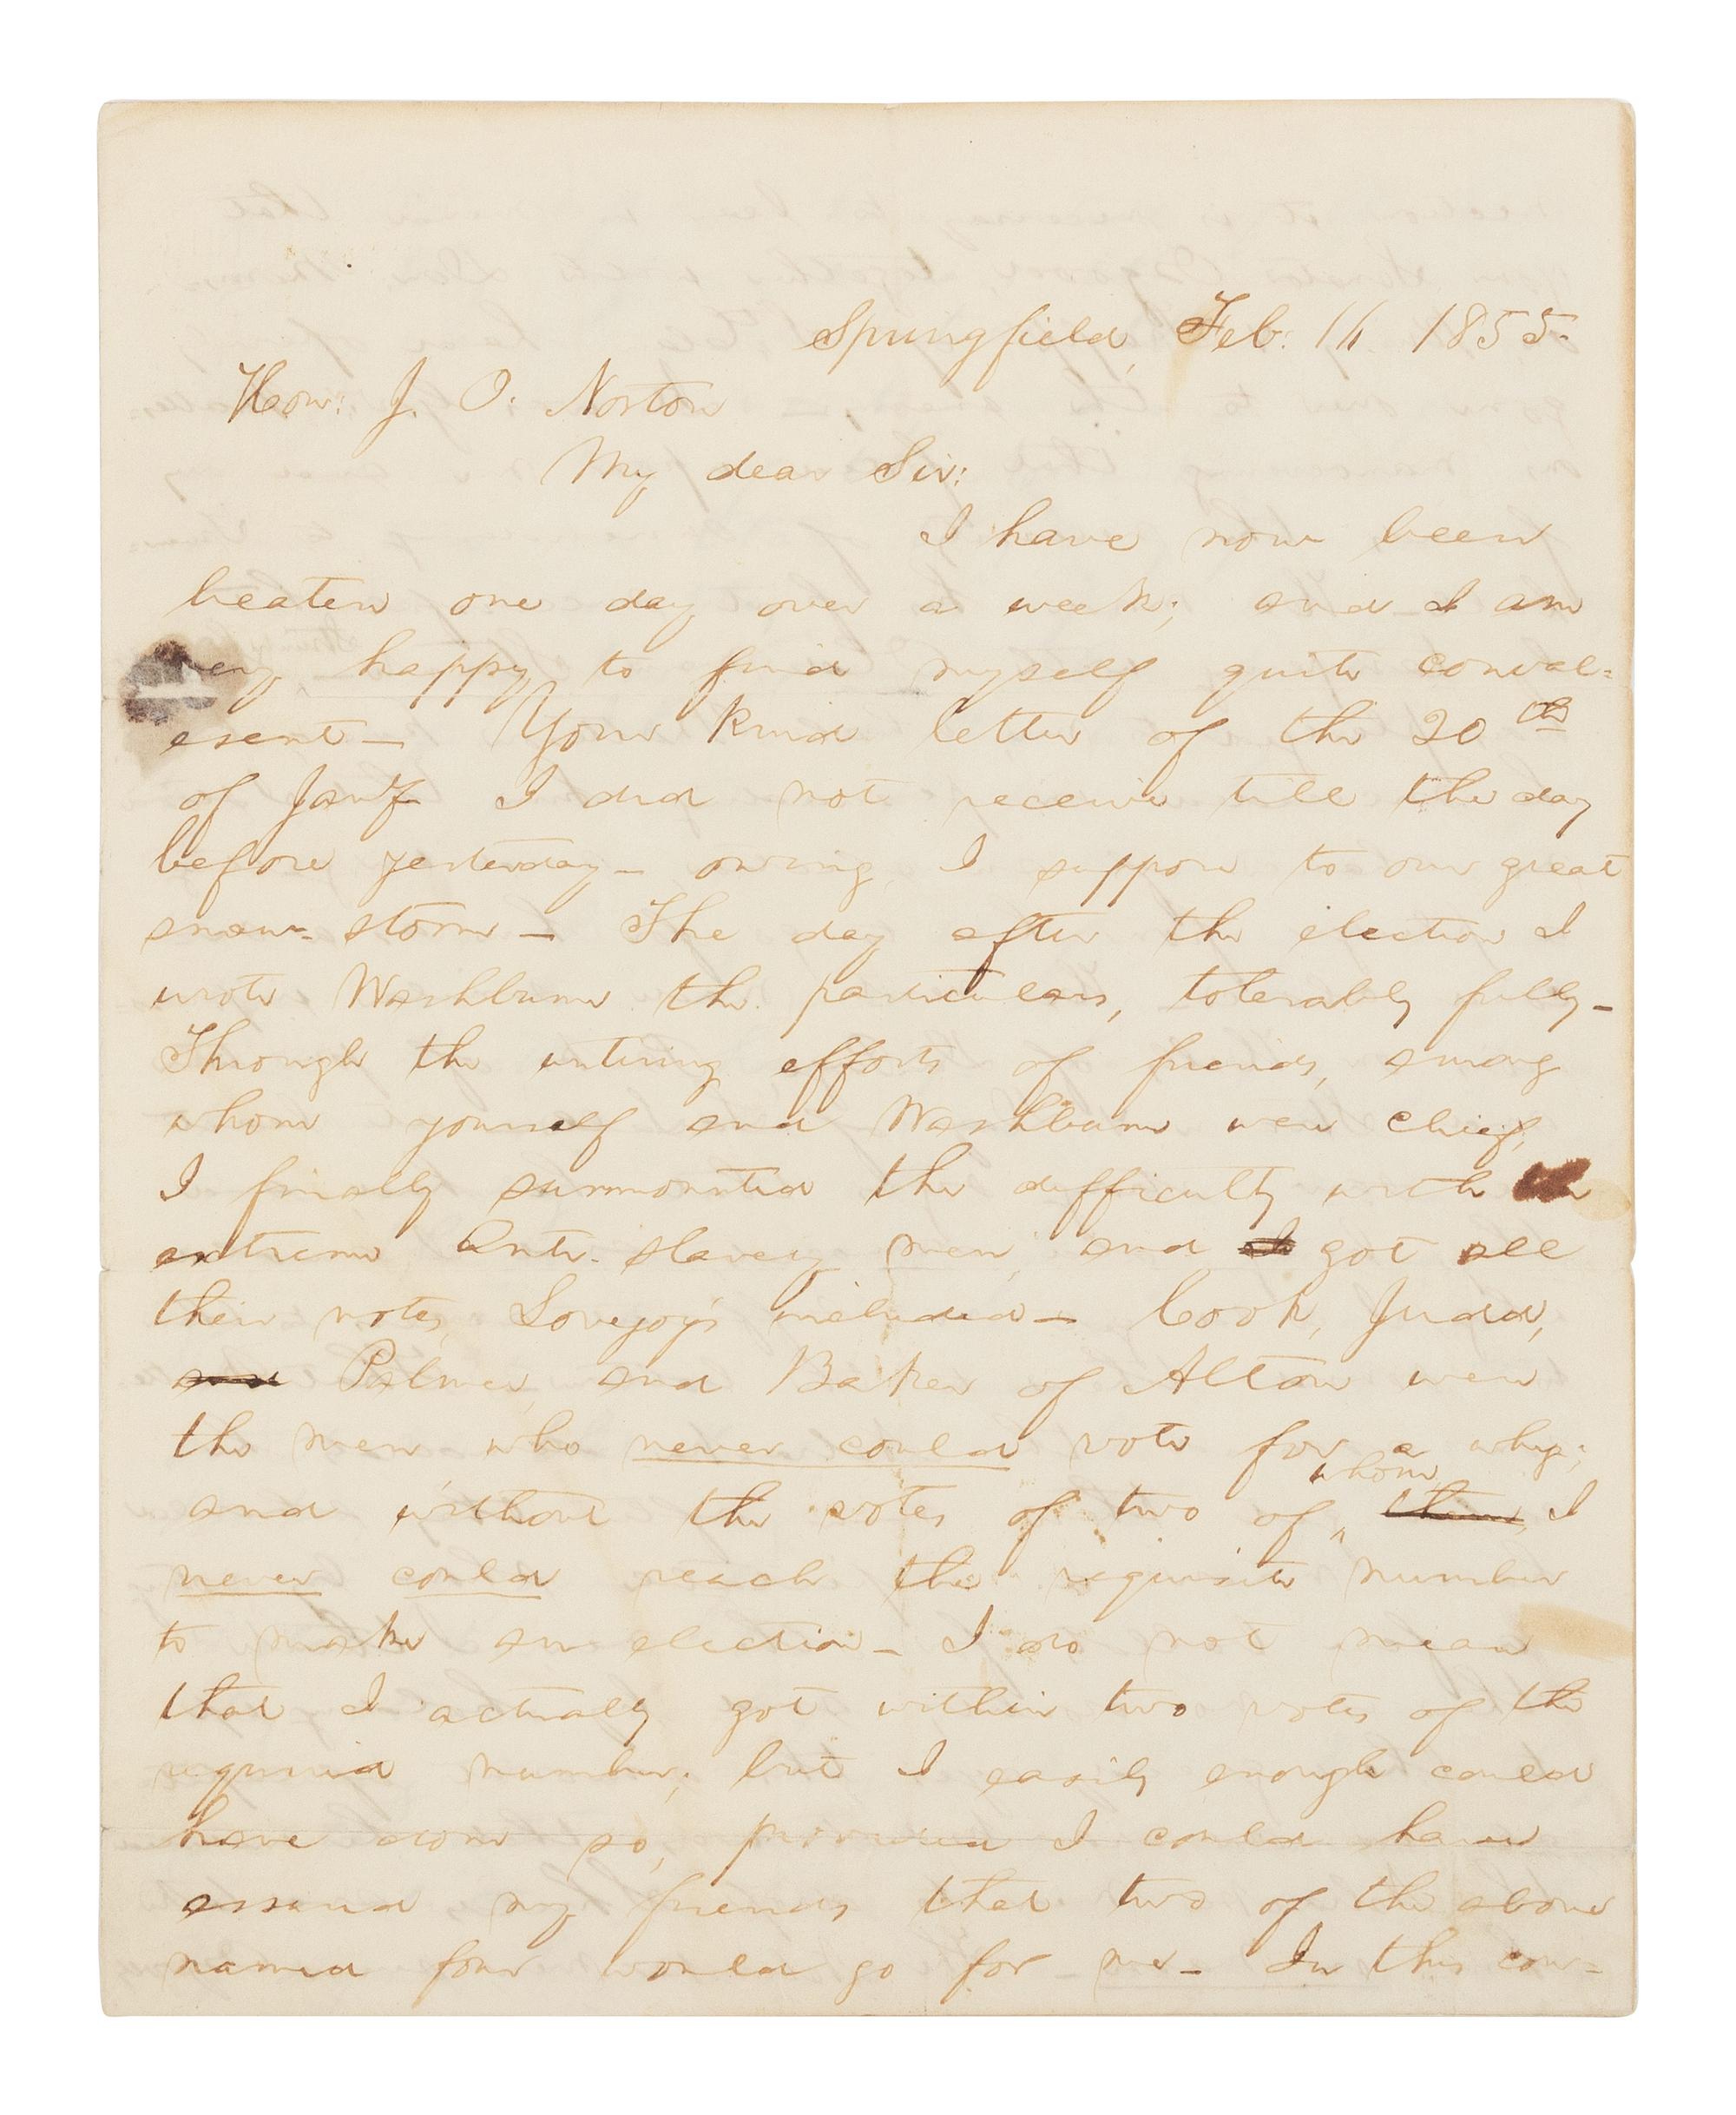 Springfield, Feb: 16. 1855.
Hon: J. O. Norton
My dear Sir:
I have now been
beaten one day over a week; and I am
very happy to find myself quite conval=
esent— Your kind letter of the 20th
of Jany. I did not receive till the day
before yesterday— owing, I suppose to our great
snow-storm— The day after the election I
wrote Washburne the particulars, tolerably fully—
Through the untiring efforts of friends, among
whom yourself and Washburne were chief,
I finally surmounted the difficulty with the
extreme Anti-slavery men, and got all
their votes, Lovejoy's included— Cook, Judd,
and Palmer, and Baker of Alton were
the men who never could vote for a whig;
whom
and without the votes of two of them, I
never could reach the requisite number
to make an election— I do not mean
that I actually got within two votes of the
required number; but I easily enough could
have done so, provided I could have
assured my friends that two of the above
named four would go for me— In this con=